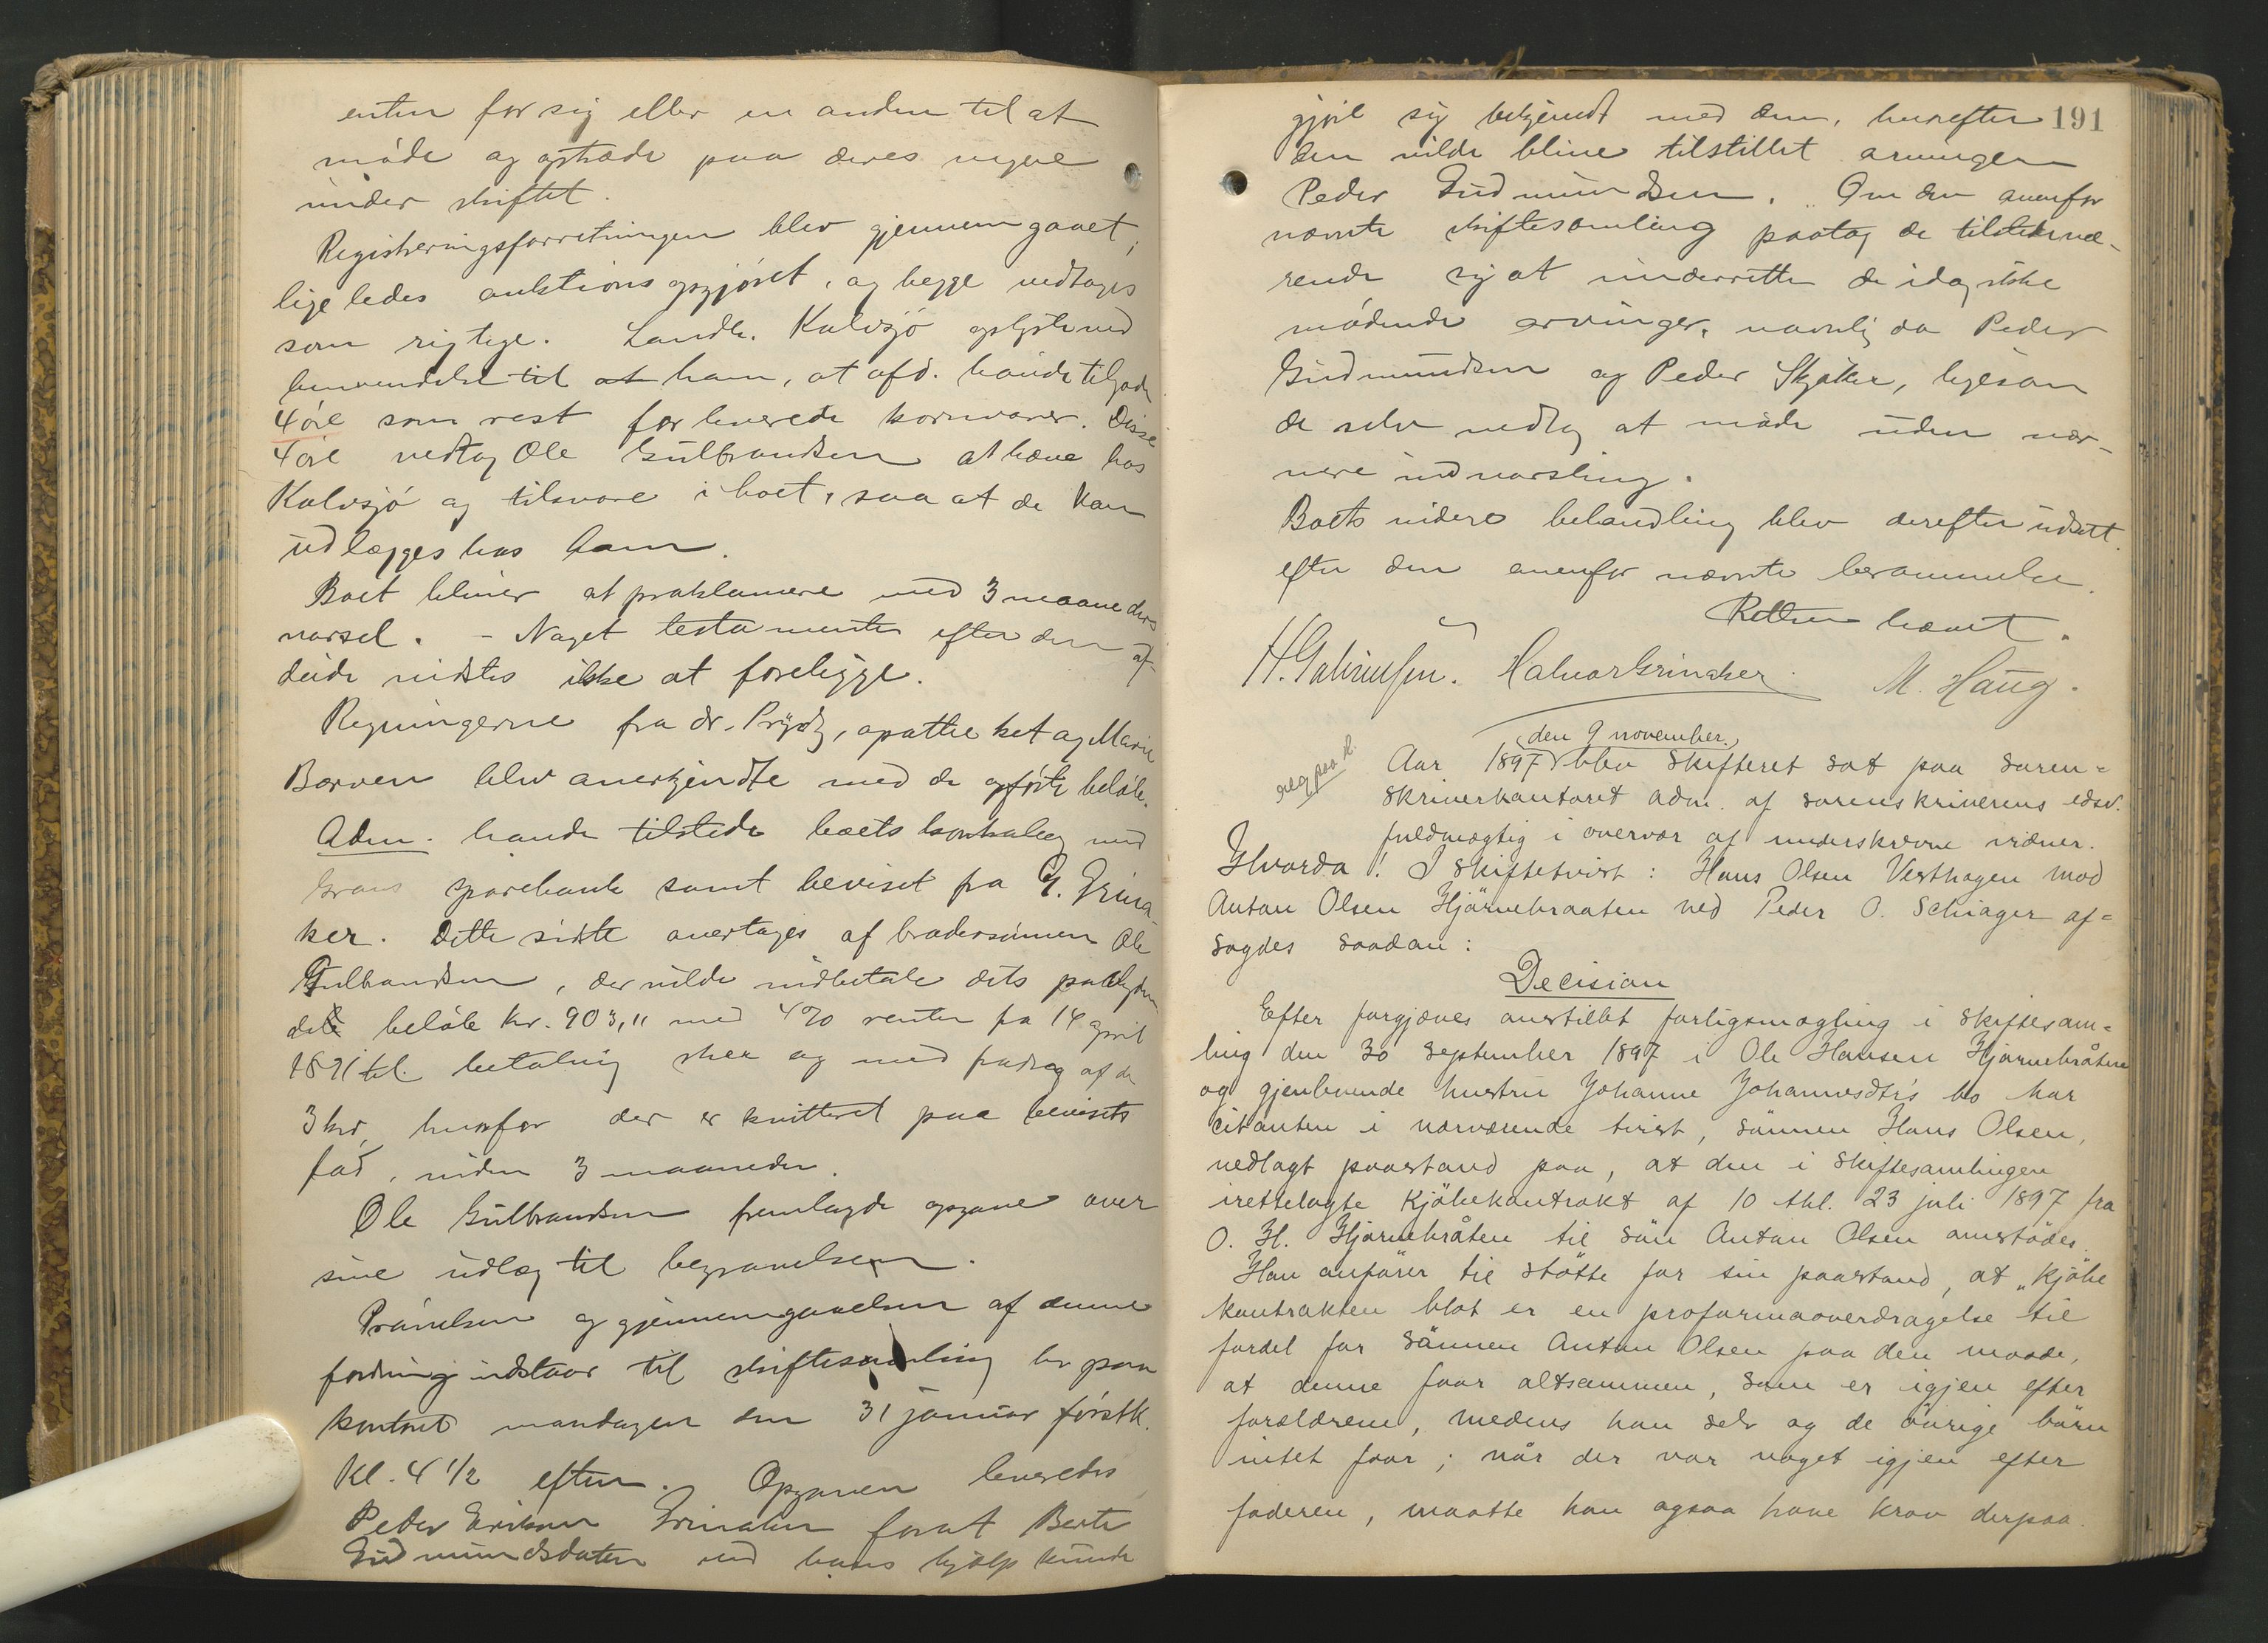 enten for sig eller en anden til at
møde og optræde paa deres vegne
under skiftet.
Registreringsforretningen blev gjennemgaaet,
ligeledes auktionsopgjøret, og begge vedtages
som rigtige. Landh. Kalvsjø oplyste ved
henvendelse til at ham, at afd. havde tilgode
4 øre som rest for leverede kornvarer. Disse
4 øre vedtog Ole Gulbrandsen at hæve hos
Kalvsjø og tilsvare i boet, saa at de kan
udlægges hos ham.
Boet bliver at proklamere med 3 maaneders
varsel. - Noget testamente efter den af-
døide vidstes ikke at foreligge.
Regningerne fra dr. Prydz, apotheket og Marie
Borven blev anerkjendte med de opførte beløb.
Adm. havde tilstede boets kontrabog med
Grans sparebank samt beviset fra G. Grina-
ker. Dette sidste overtages af brodersønnen Ole
Gulbrandsen, der vilde indbetale dets paalyden
de beløb kr. 903,11 med 4% renter fra 14 april
1891 til betaling sker og med fradrag af de
3 kr, hvorfor der er kvitteret paa bevisets
fod, inden 3 maaneder.
Ole Gulbrandsen fremlagde opgave over
sine udlæg til begravelsen.
Prøvelsen og gjennemgaaelsen af denne
fordring udstaar til skiftesamling her paa
kontoret mandagen den 31 januar førstk.
Kl. 4 1/2 efterm. Opgaven leveredes
Peder Eriksen Grinaker forat Berte
Gudmundsdatter ved hans hjælp kunde
191
gjøre sig bekjendt med den, hvorefter
den vilde blive tilstillet arvingen
Peder Gudmundsen. Om den ovenfor
nævnte skiftesamling paatog de tilstedevæ-
rende sig at underrette de idag ikke
mødende arvinger, navnlig da Peder
Gudmundsen og Peder Skjaker, ligesom
de selv vedtog at møde uden nær-
mere indvarsling.
Boets videre behandling blev derefter udsatt
efter den ovenfor nævnte berammelse.
Retten hævet.
H. Gabrielsen. Halvor Grinaker. M. Haug.
den 9 november.
Aar 1897 blev skifteret sat paa soren=
skriverkontoret adm. af sorenskriverens edsv.
fuldmægtig i overvær af underskrevne vidner.
Hvorda! I skiftetvist: Hans Olsen Vesthagen mod
Anton Olsen Hjørnebraaten ved Peder O. Schiager af=
sagdes saadan:
Decision
Efter forgjæves anstillet forligsmægling i skiftesam=
ling den 30 september 1897 i Ole Hansen Hjørnebråten
og gjenlevende hustru Johanne Johannesdtr's bo har
citanten i nærværende tvist, sønnen Hans Olsen,
nedlagt paastand paa, at den i skiftesamlingen
irettelagte kjøbekontrakt af 10 thl. 23 juli 1897 fra
O. H. Hjørnebråten til søn Anton Olsen omstødes.
Han anfører til støtte for sin paastand, at "kjøbe
kontrakten blot er en proformaoverdragelse til
fordel for sønnen Anton Olsen paa den maade,
at denne faar altsammen, som er igjen efter
forældrene, medens han selv og de øvrige børn
intet faar; når der var noget igjen efter
faderen, maatte han ogsaa have krav derpaa.